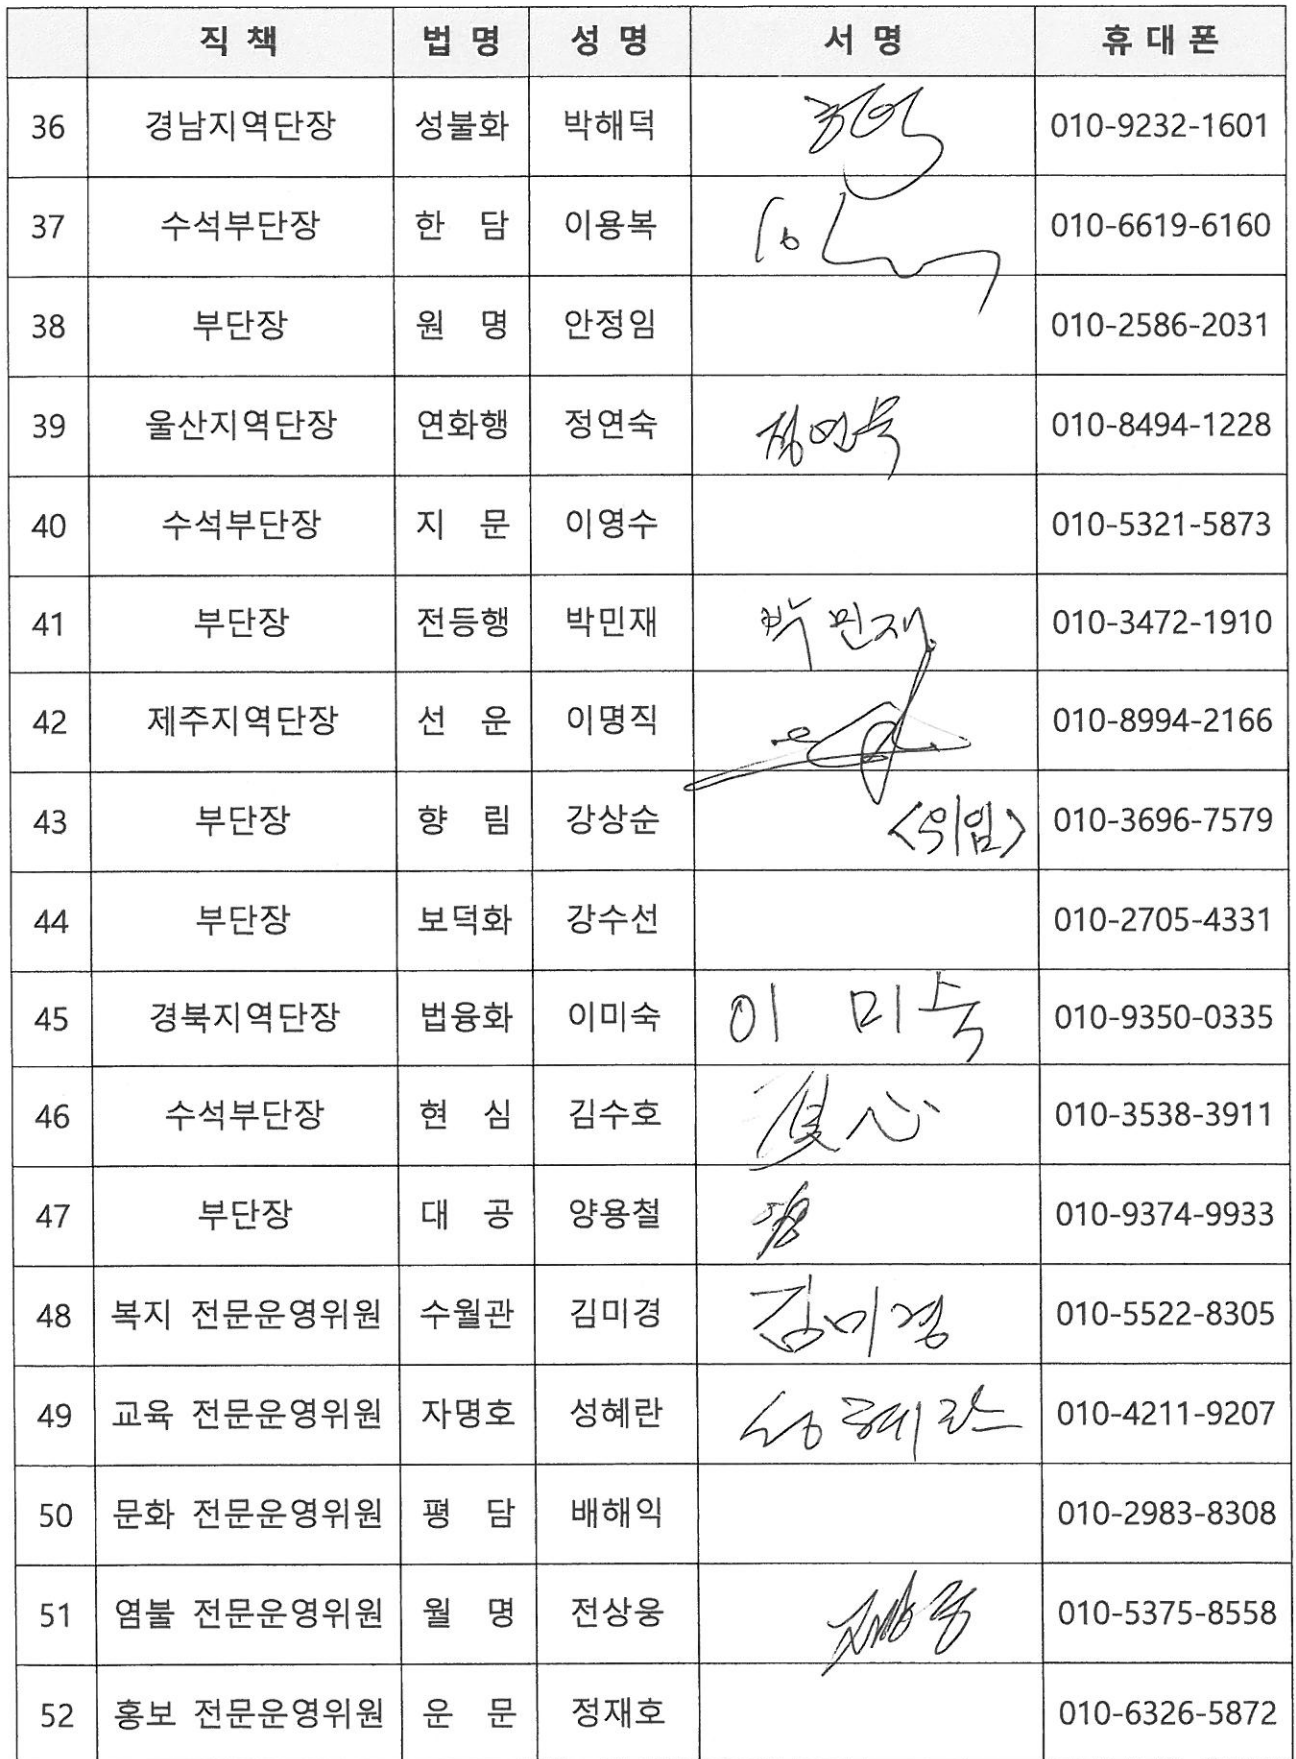 직 책 법 명 성 명 서 명 휴 대 폰
36 경남지역단장 성불화 박해덕 010-9232-1601
37 수석부단장 한 담 이용복 010-6619-6160
38 부단장 원 명 안정임 010-2586-2031
39 울산지역단장 연화행 정연숙 정연숙 010-8494-1228
40 수석부단장 지 문 이영수 010-5321-5873
41 부단장 전등행 박민재 박민재 010-3472-1910
42 제주지역단장 선 운 이명직 010-8994-2166
43 부단장 향 림 강상순 <위임> 010-3696-7579
44 부단장 보덕화 강수선 010-2705-4331
45 경북지역단장 법융화 이미숙 이 미숙 010-9350-0335
46 수석부단장 현 심 김수호 010-3538-3911
47 부단장 대 공 양용철 010-9374-9933
48 복지 전문운영위원 수월관 김미경 김미경 010-5522-8305
49 교육 전문운영위원 자명호 성혜란 성혜란 010-4211-9207
50 문화 전문운영위원 평 담 배해익 010-2983-8308
51 염불 전문운영위원 월 명 전상웅 010-5375-8558
52 홍보 전문운영위원 운 문 정재호 010-6326-5872